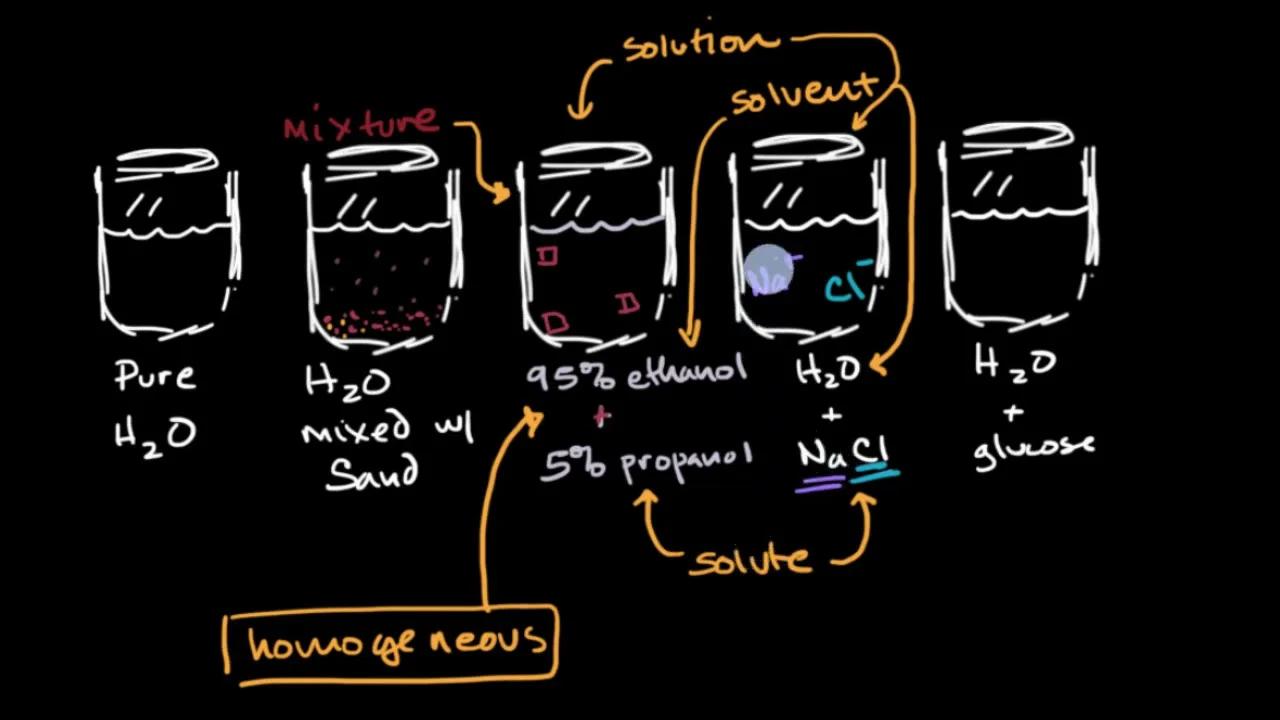 solution
solvent
mixture
Na⁻
Cl⁻
Pure
H₂O
H₂O
mixed w/
Sand
95% ethanol
+
5% propanol
H₂O
+
NaCl
H₂O
+
glucose
solute
homogeneous